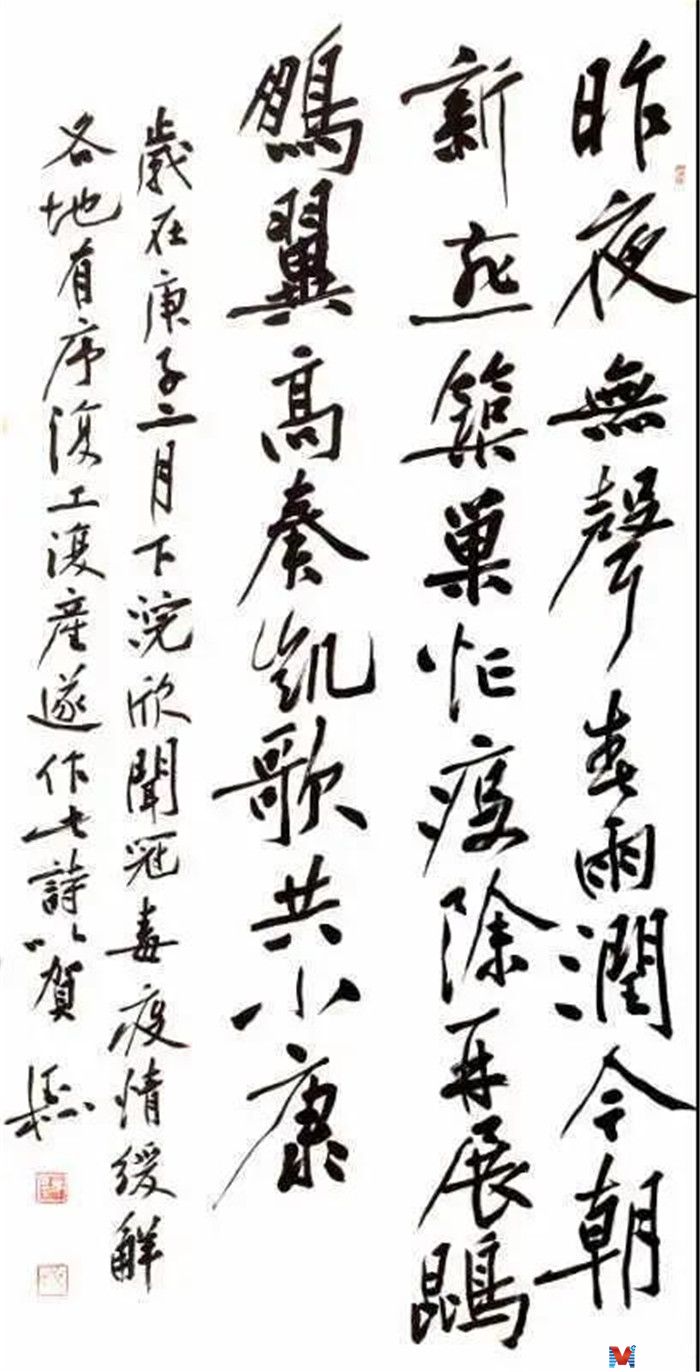 昨夜無聲春雨潤今朝
新燕築巢忙疫除再展鵾
鵬翼高奏凱歌共小康
歲在庚子二月下浣欣聞冠毒疫情緩解
各地有序復工復產遂作詩以賀